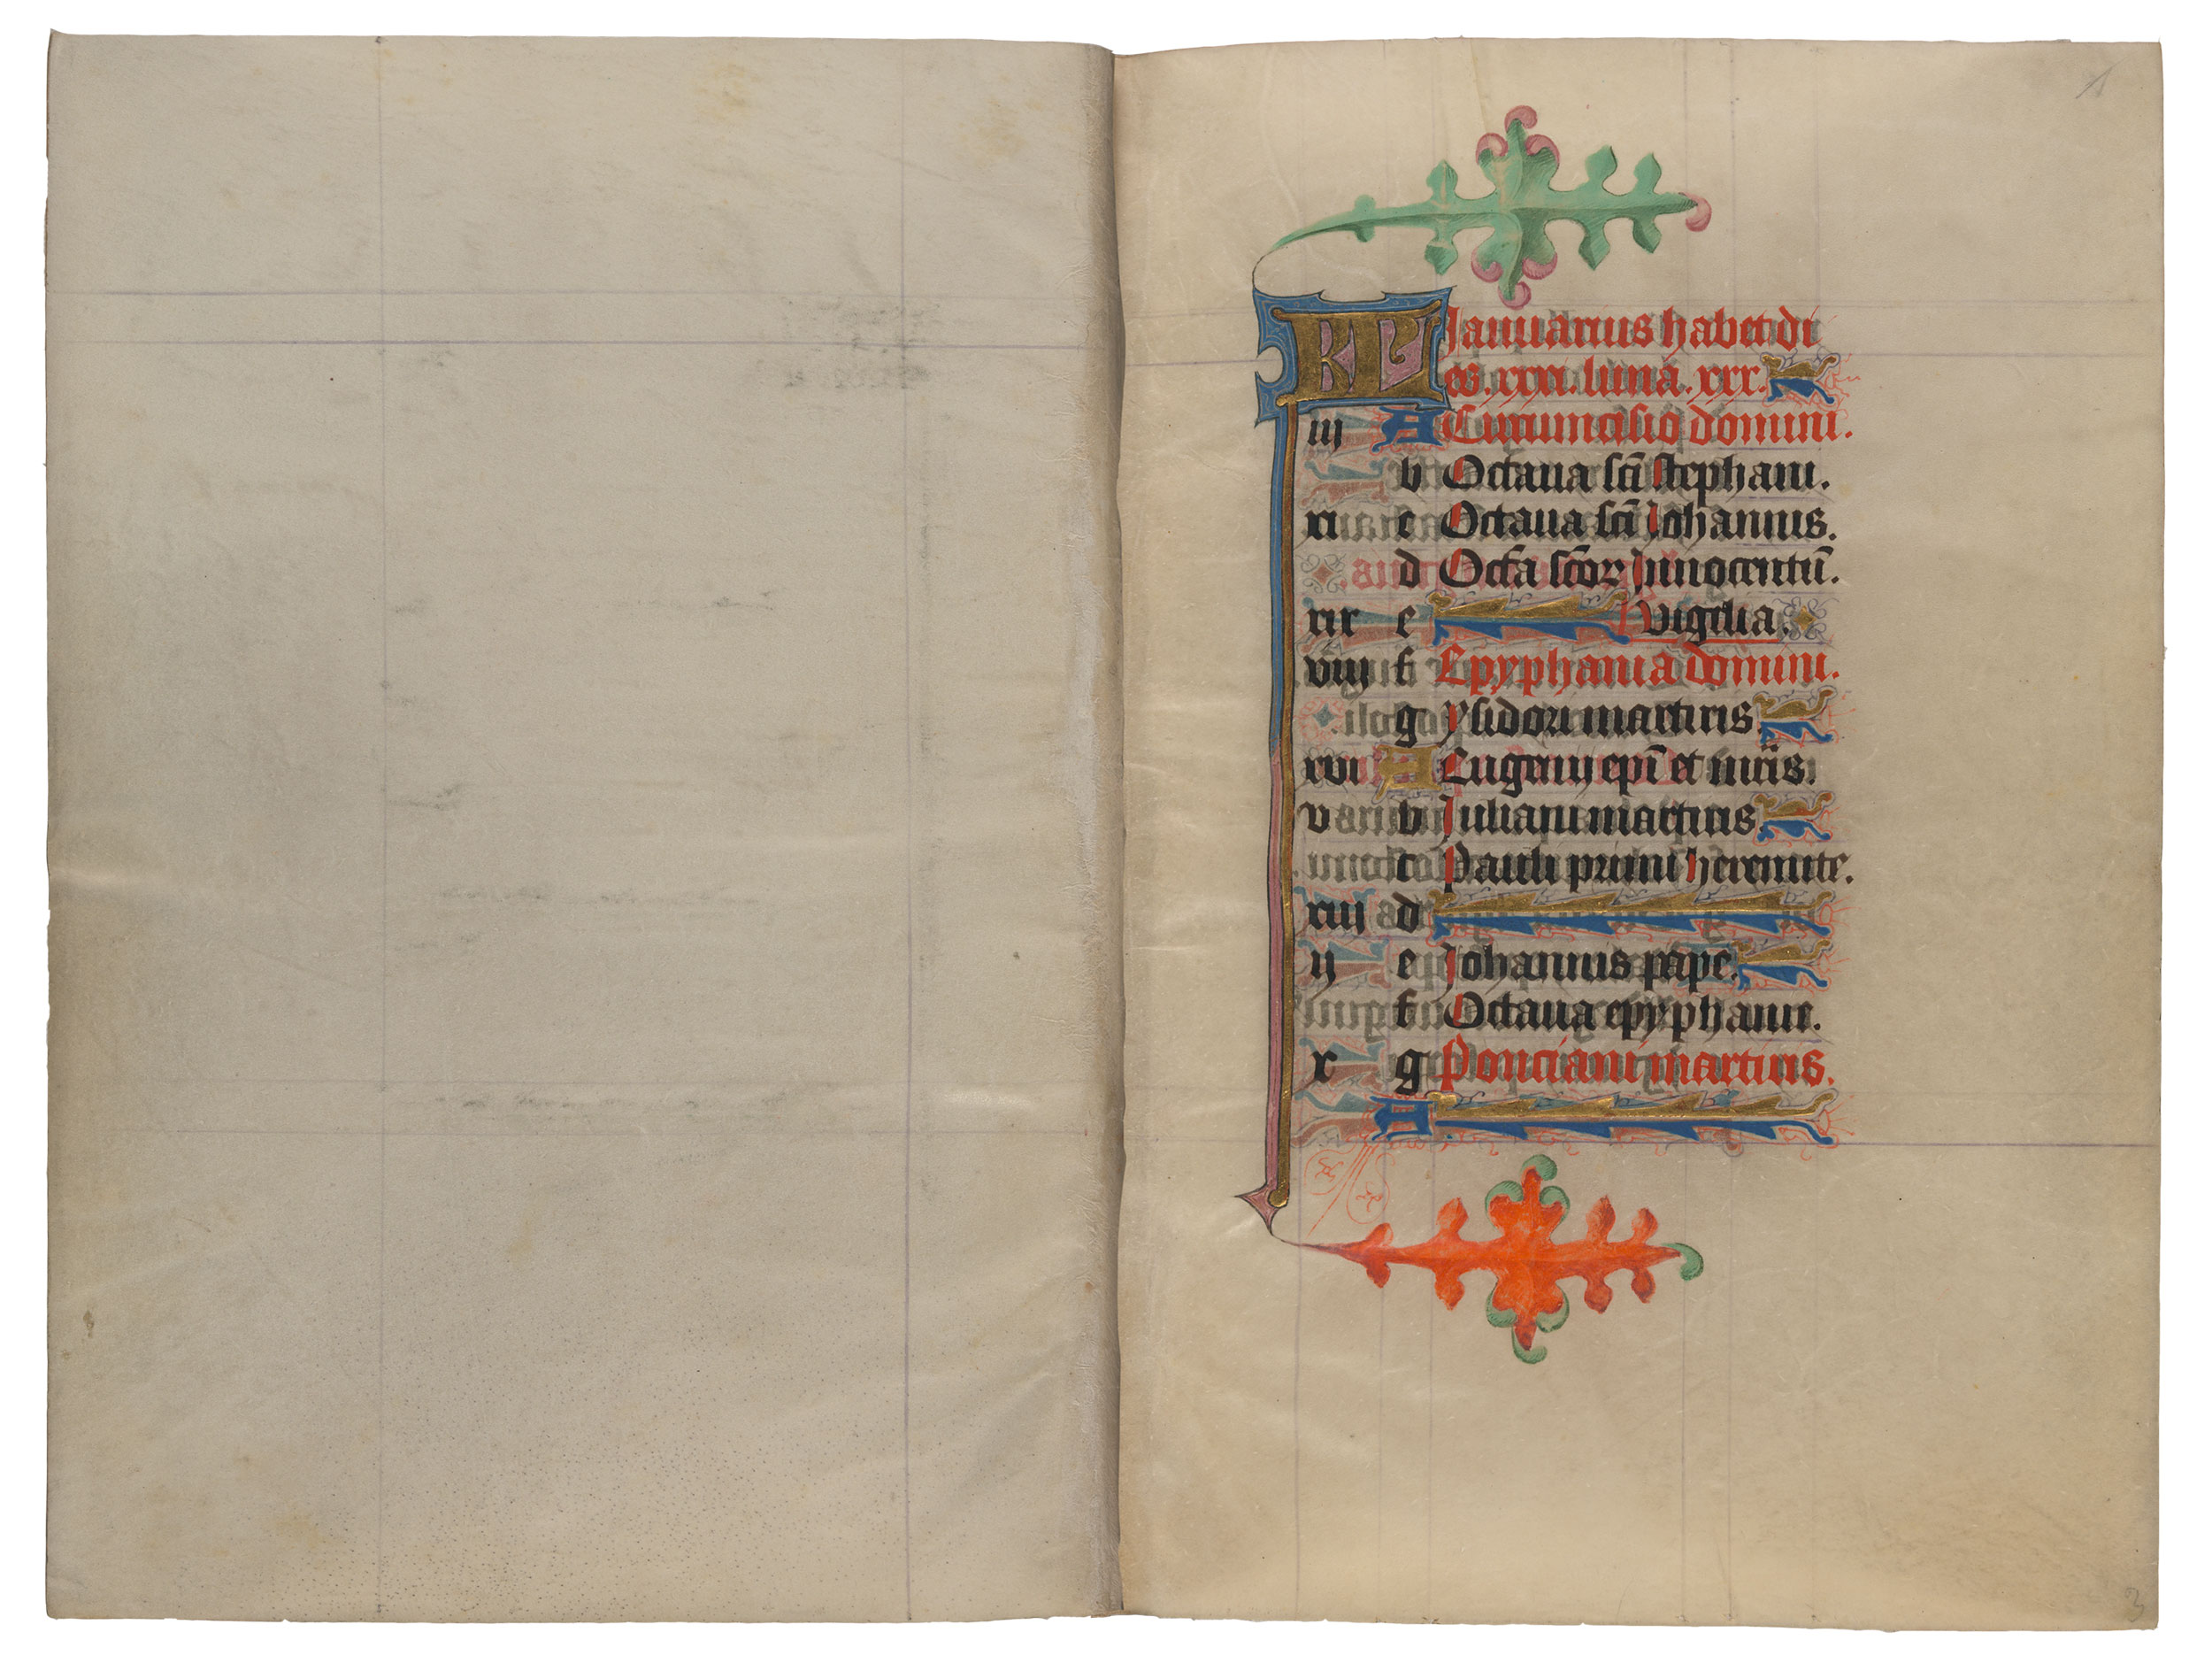 1
KL Januarius habet di
es. xxxi. luna. xxx.
iij A Circuncisio domini.
b Octaua sci̅ stephani.
xi c Octaua sci̅ Johannis.
d Octa̅ sco̅rꝝ Innocentu̅.
xix e Vigilia.
viij f Epyphania domini.
g ysidori martiris
xvi A Eugenij epi̅ et
v b Juliani martiris
c Pauli primi heremite.
xiij d
ij e Johannis pape.
f Octaua epyphanie.
x g Ponciani martiris.
A
3